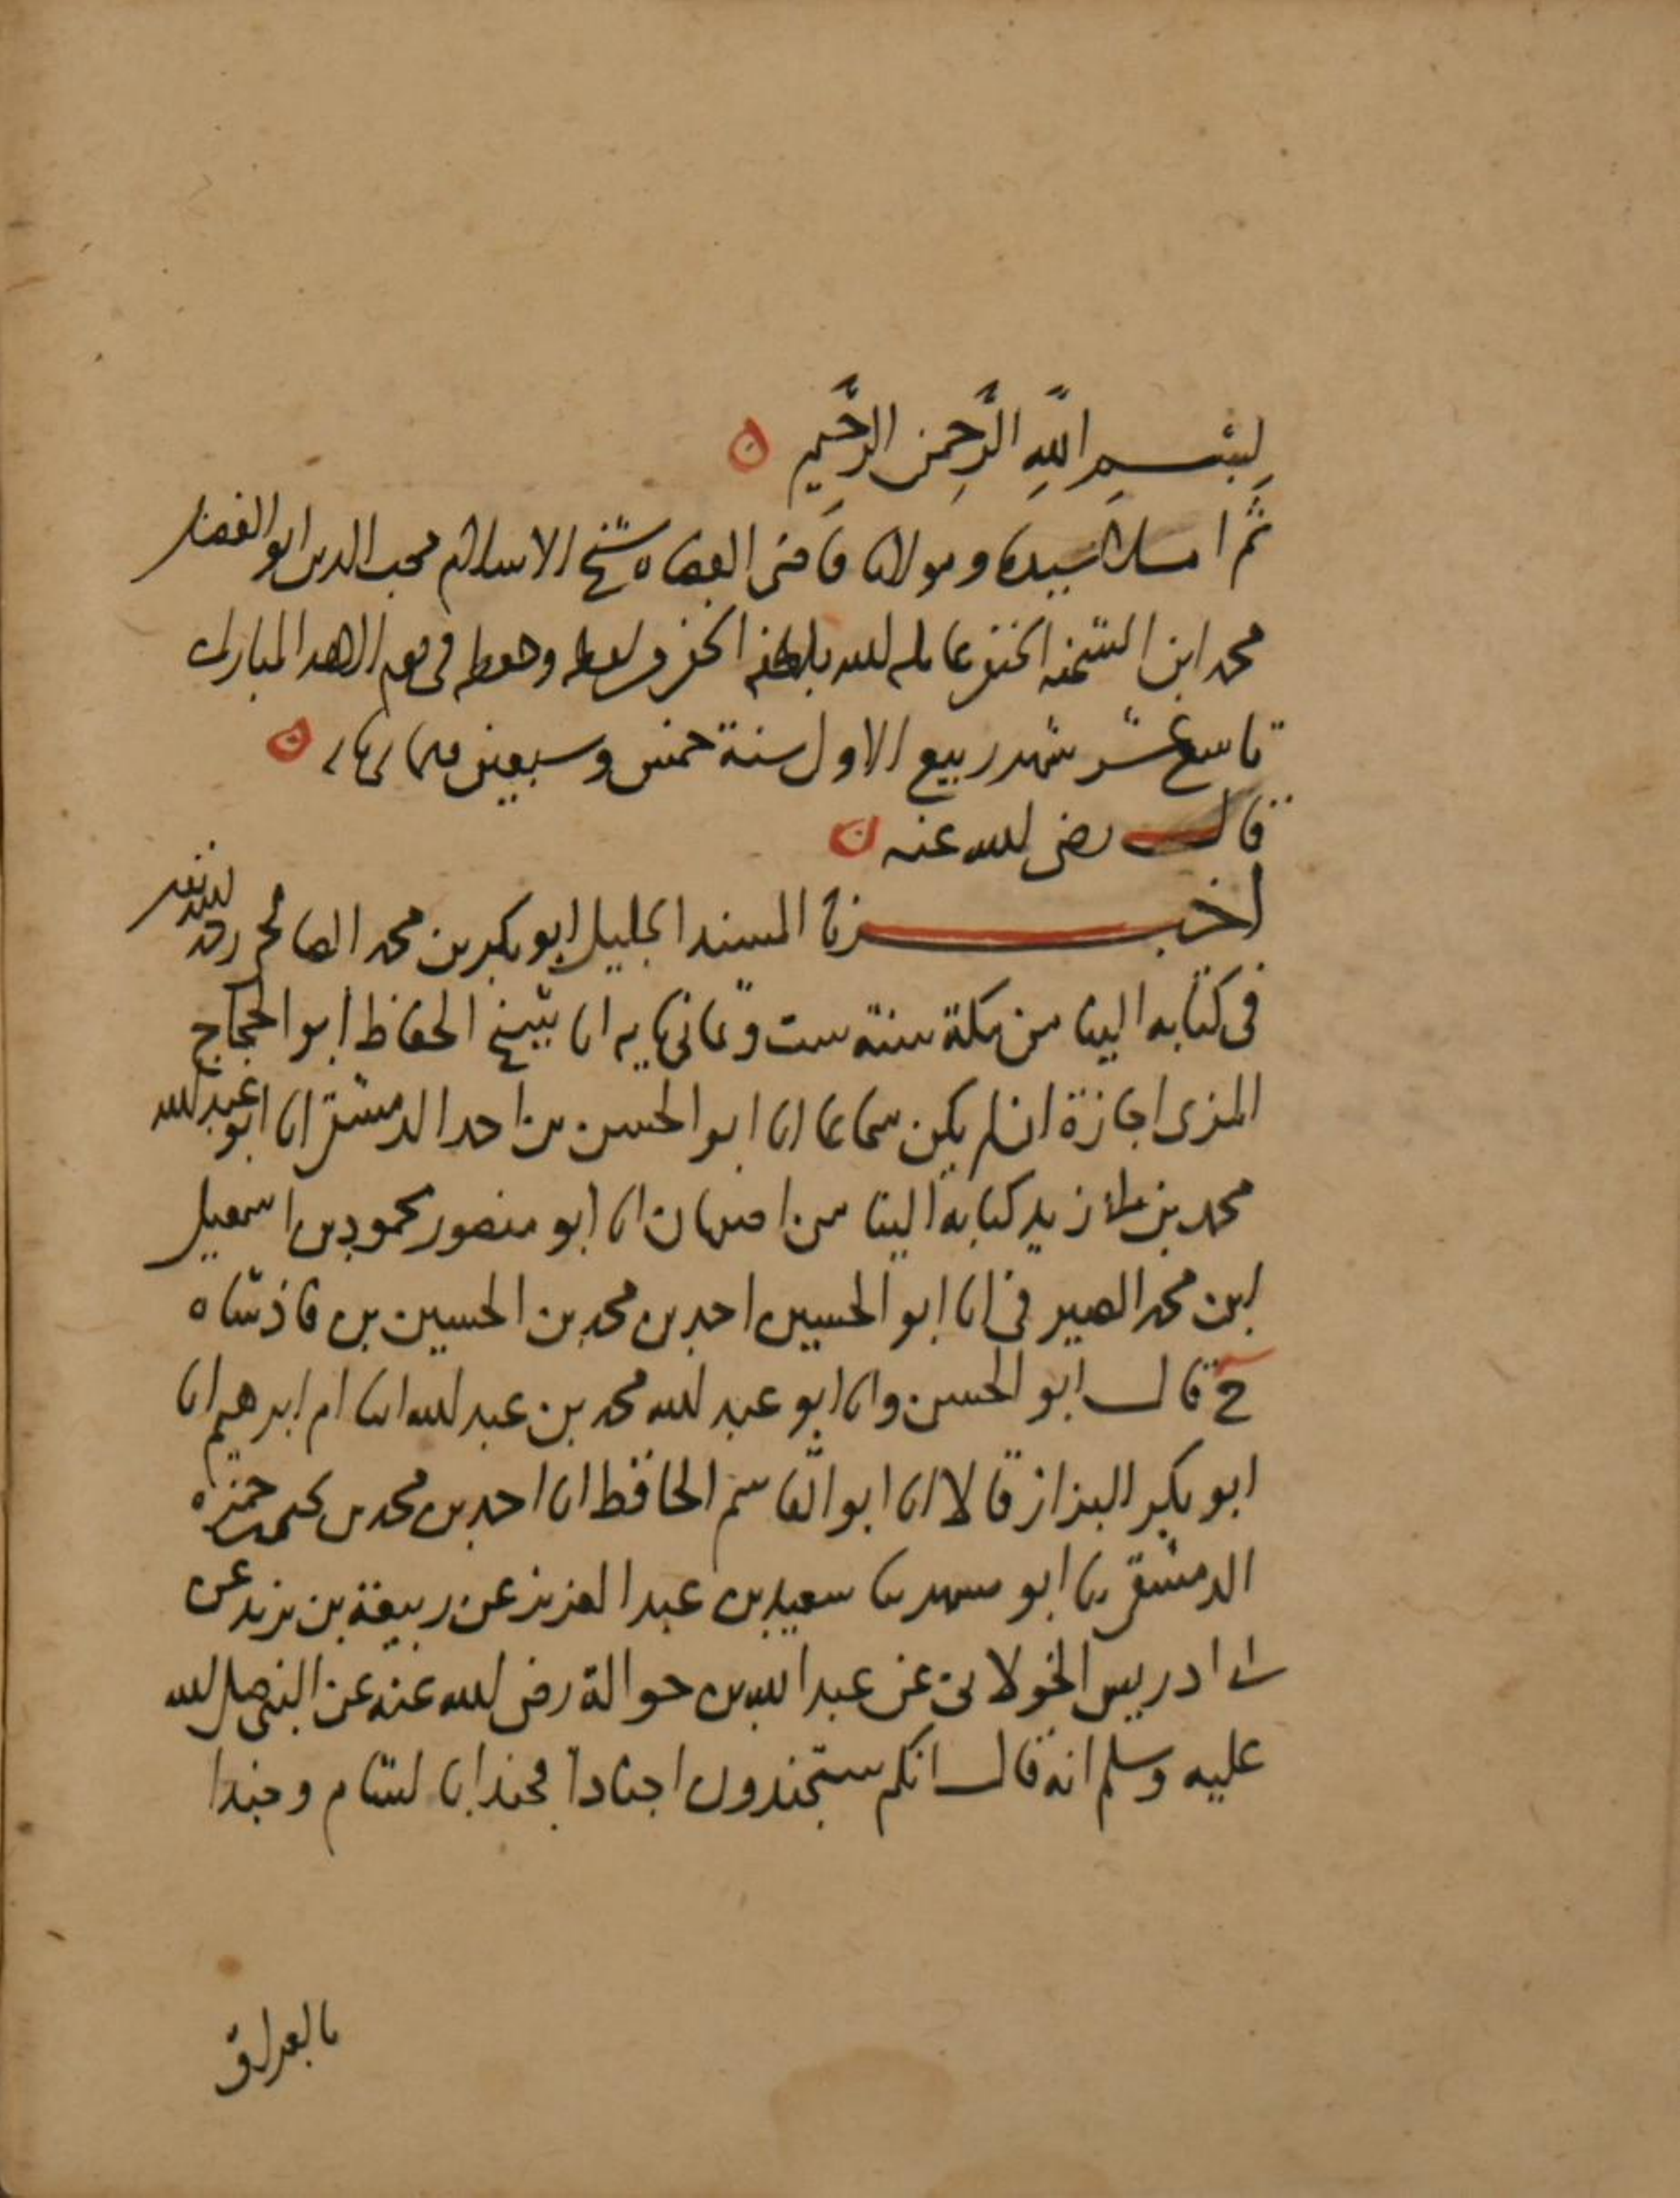 بِسْمِ اللهِ الرَّحمن الرَّحِيمِ ن
ثم املانا سيدنا ومولانا قاضى القضاه شيخ الاسلام محب الدين ابو الفضل
محمد ابن الشحنه الحنفى عامله الله بلطفه الخفى ولفظه وحفظه فى يوم الاحد المبارك
تاسع عشر شهر ربيع الاول سنة خمس وسبعين وثمانمايه ن
قال رضى الله عنه ن
اخبرنا المسند الجليل ابو بكر بن محمد الصالحى
فى كتابه الينا من مكة سنة ست وثمانمايه انا شيخ الحفاظ ابو الحجاج
المزى اجازة ان لم يكن سماعا انا ابو الحسن بن احمد الدمشقى انا ابو عبد الله
محمد بن زيد كتابة الينا من اصبهان انا ابو منصور محمود بن اسمعيل
ابن محمد الصيرفى انا ابو الحسين احمد بن محمد بن الحسين بن فاذشاه
ح قال ابو الحسن وانا ابو عبد الله محمد بن عبد الله انبا ام ابرهيم انا
ابو بكر البزاز قالا انا ابو القاسم الحافظ انا احمد بن محمد بن يحيى بن حمزه
الدمشقى نا ابو مسهر نا سعيد بن عبد العزيز عن ربيعة بن يزيد عن
ابى ادريس الخولانى عن عبد الله بن حوالة رضى الله عنه عن النبى صلى الله
عليه وسلم انه قال انكم ستجندون اجنادا فجندا بالشام وجندا
بالعراق